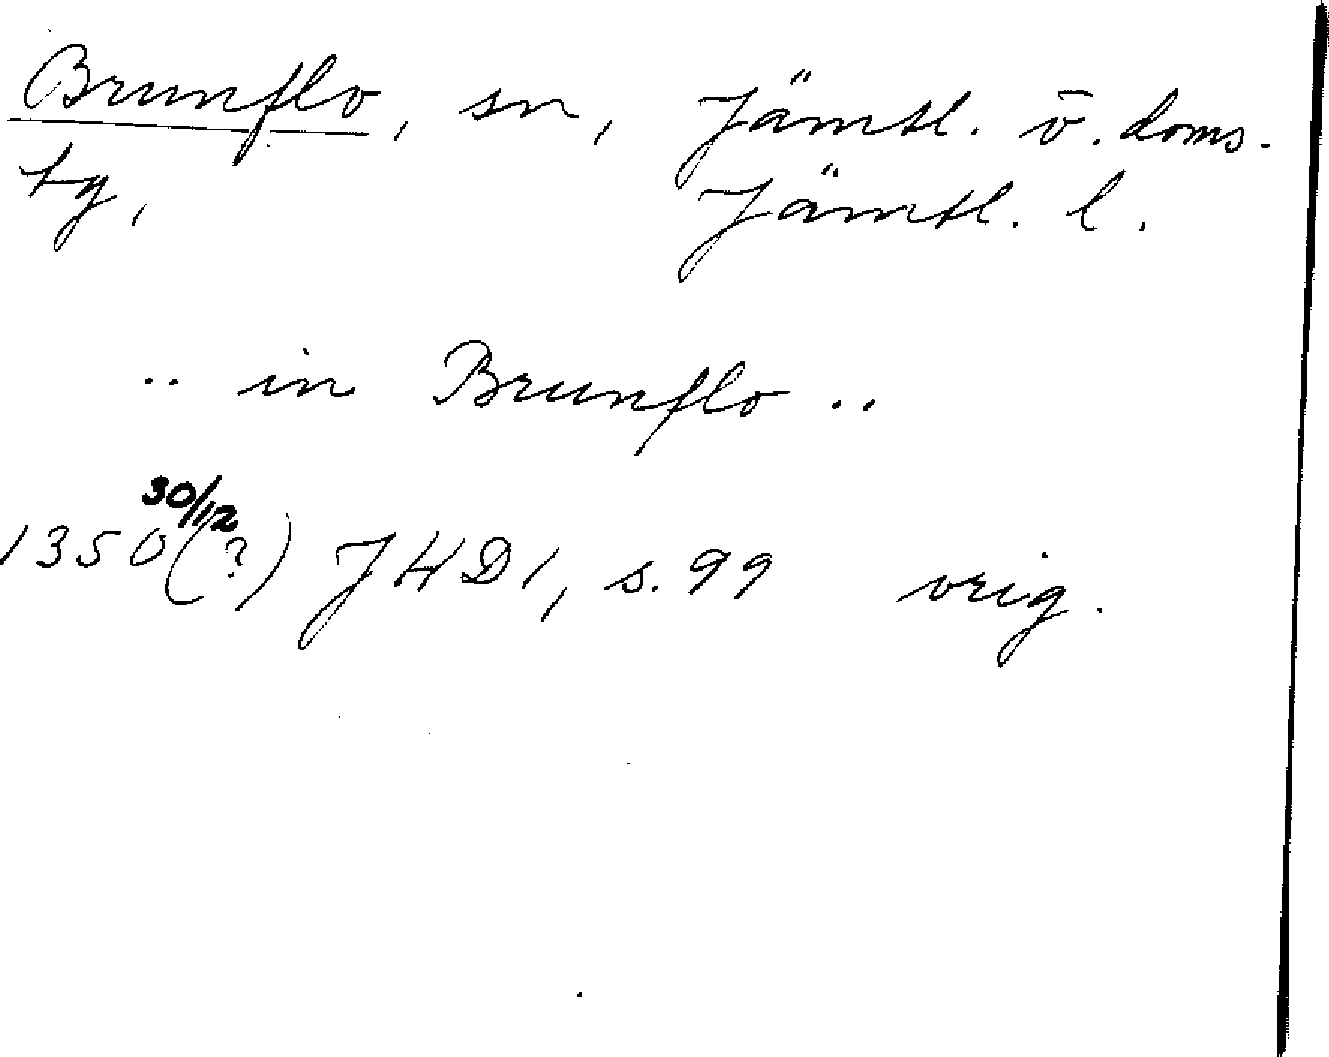 Brunflo, sn, Jämtl. ö. doms.
tg, Jämtl. l.
.. in Brunflo ..
30/12
1350(?) JHD1, s. 99 orig.